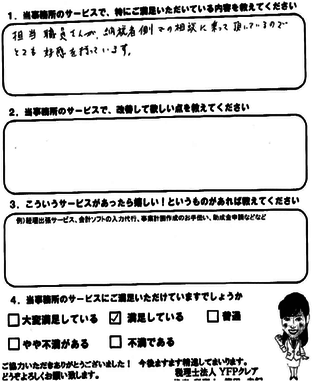 1．当事務所のサービスで、特にご満足いただいている内容を教えてください
担当職員さんが、納税者側での相談に乗って頂いているので
とても好感を持っています。
2．当事務所のサービスで、改善して欲しい点を教えてください
3．こういうサービスがあったら嬉しい！というものがあれば教えてください
例）経理出張サービス、会計ソフトの入力代行、事業計画作成のお手伝い、助成金申請などなど
4．当事務所のサービスにご満足いただけていますでしょうか
□大変満足している ☑満足している □普通
□やや不満がある □不満である
ご協力いただきありがとうございました！ 今後ますます精進してまいります。
どうぞよろしくお願い致します。 税理士法人 YFPクレア